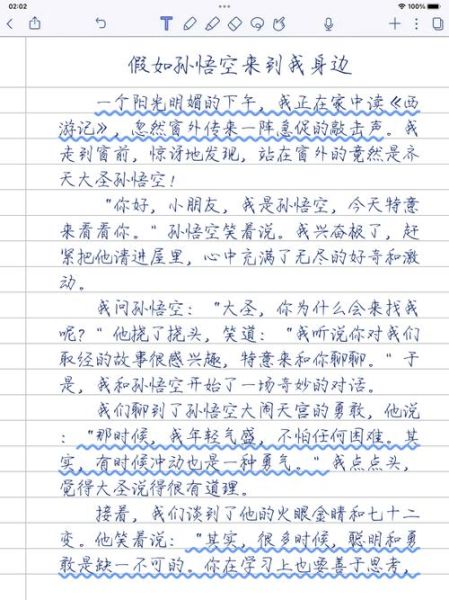 02:02
100%
假如孙悟空来到我身边
一个阳光明媚的下午，我正在家中读《西
游记》，忽然窗外传来一阵急促的敲击声。我
走到窗前，惊讶地发现，站在窗外的竟然是齐
天大圣孙悟空！
“你好，小朋友，我是孙悟空，今天特意
来看看你。”孙悟空笑着说。我兴奋极了，赶
紧把他请进屋里，心中充满了无尽的好奇和激
动。
我问孙悟空：“大圣，你为什么会来找我
呢？”他挠了挠头，笑道：“我听说你对我们
取经的故事很感兴趣，特意来和你聊聊。”于
是，我和孙悟空开始了一场奇妙的对话。
我们聊到了孙悟空大闹天宫的勇敢，他说
：“那时候，我年轻气盛，不怕任何困难。其
实，有时候冲动也是一种勇气。”我点点头，
觉得大圣说得很有道理。
接着，我们谈到了他的火眼金睛和七十二
变。他笑着说：“其实，很多时候，聪明和勇
敢是缺一不可的。你在学习上也要善于思考，